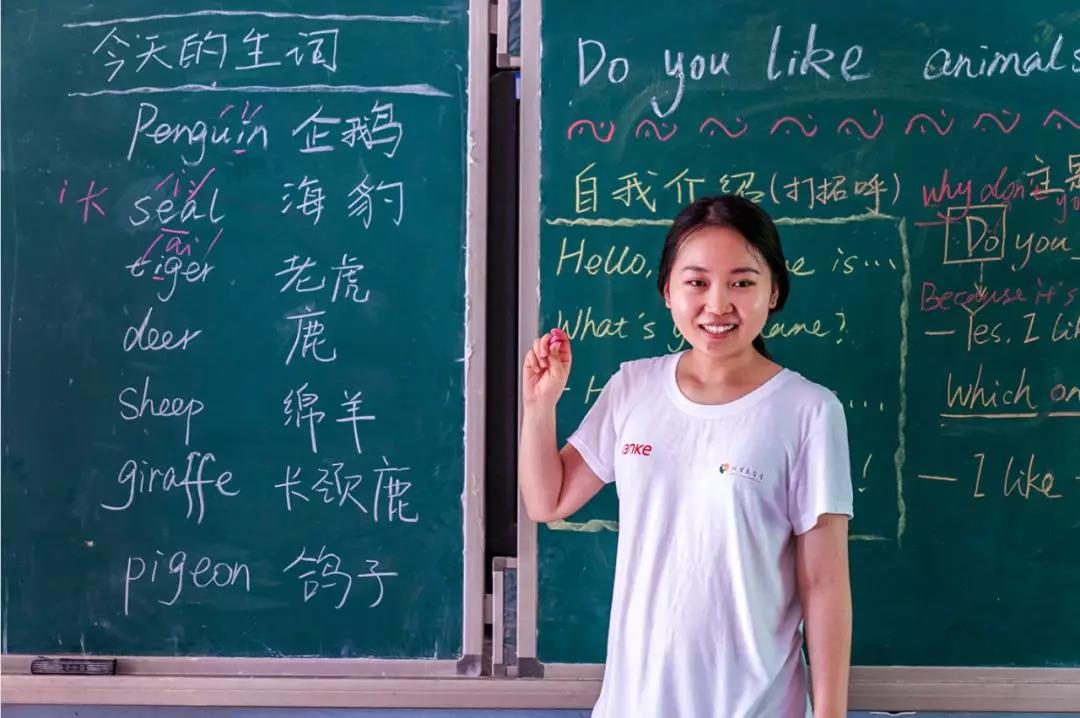 今天的生词
Penguin 企鹅
i 长 seal 海豹
i
tiger 老虎
ai
deer 鹿
Sheep 绵羊
giraffe 长颈鹿
pigeon 鸽子
Do you like animals
自我介绍(打招呼)
Hello, e is...
What's y ame?
!
why don't
主
Do you
Because it's
— Yes, I li
Which on
— I like
anke